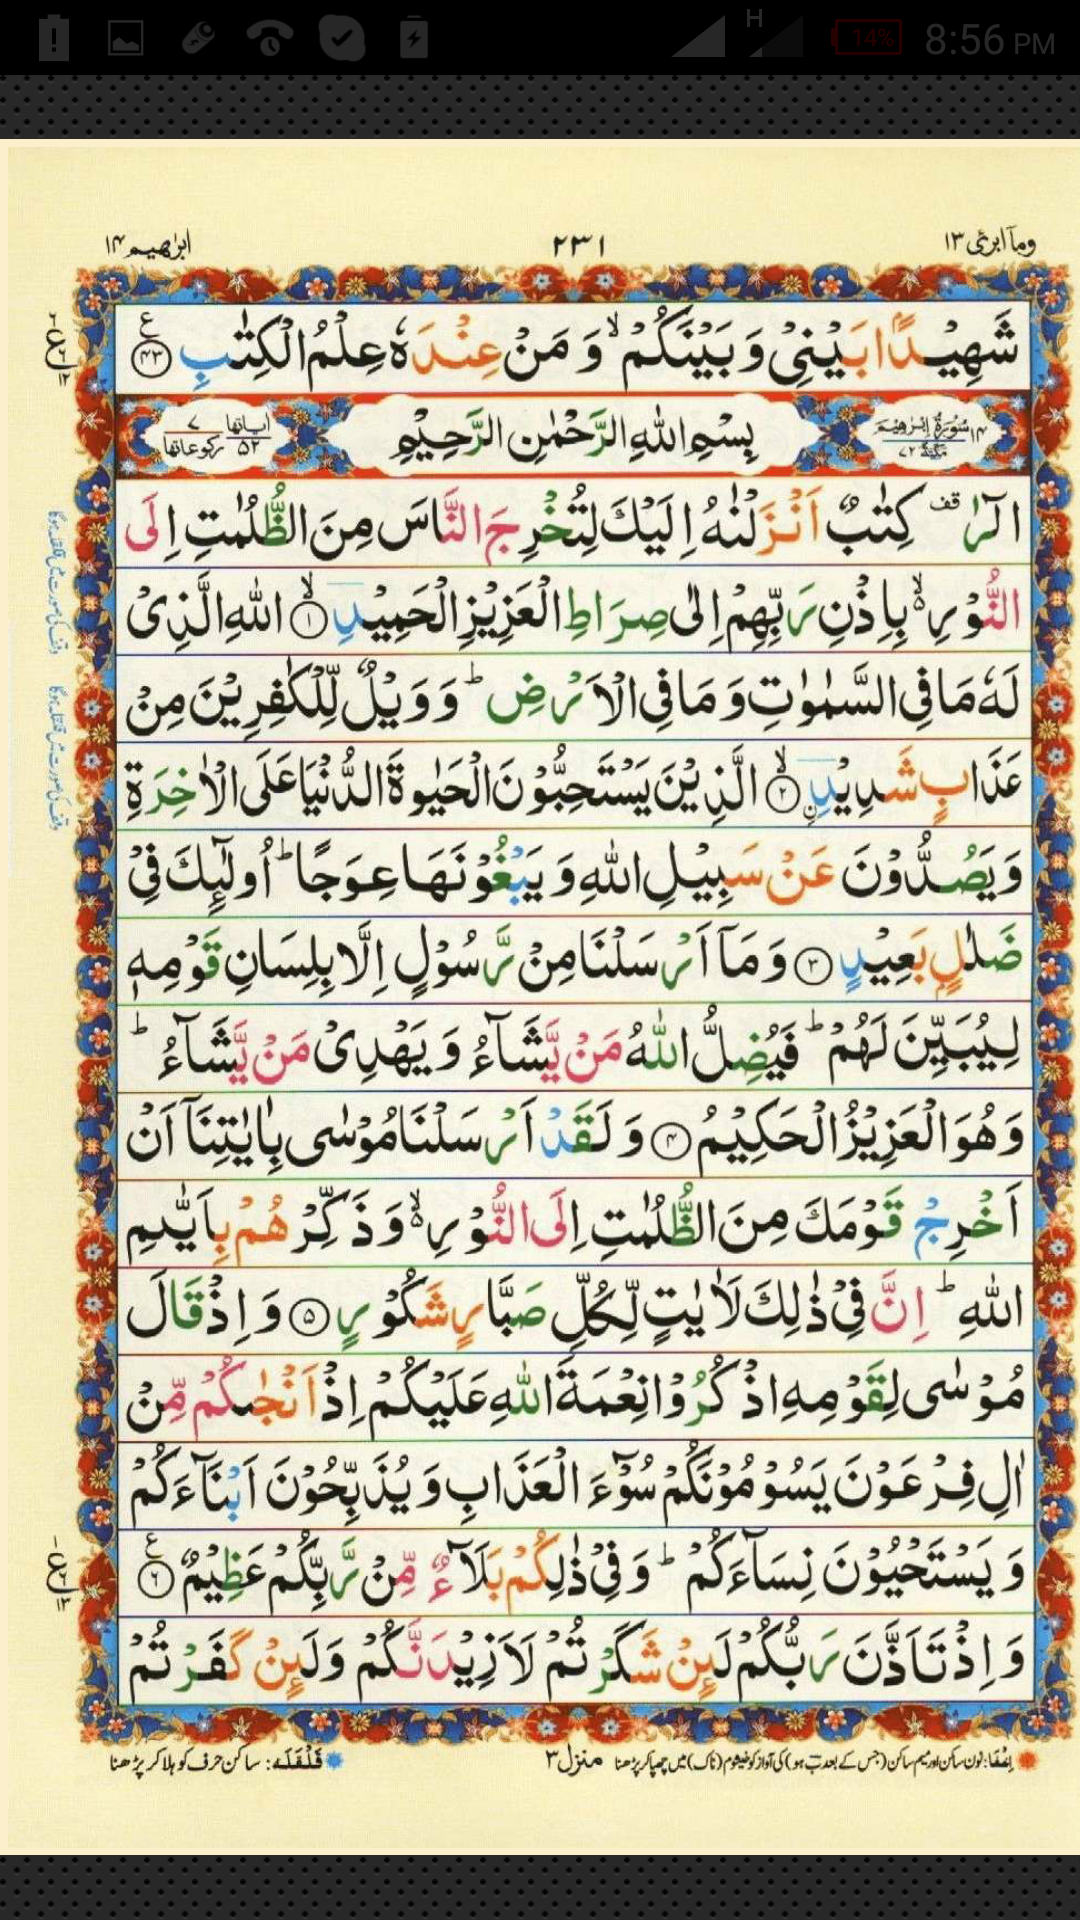 H
14%
8:56 PM
وماۤ ابرئ ١٣
٢٣١
ابرٰهيم ١٤
شَهِيْدًۢا بَيْنِيْ وَ بَيْنَكُمْ ۙ وَ مَنْ عِنْدَهٗ عِلْمُ الْكِتٰبِ ۧ ﴿٤٣﴾
١٤ سُوْرَةُ اِبْرٰهِيْمَ مَكِّيَّةٌ ٧٢
بِسْمِ اللّٰهِ الرَّحْمٰنِ الرَّحِيْمِ
اٰياتها ٥٢
ركوعاتها ٧
الٓرٰ ۫ قف كِتٰبٌ اَنْزَلْنٰهُ اِلَيْكَ لِتُخْرِجَ النَّاسَ مِنَ الظُّلُمٰتِ اِلَى
النُّوْرِ ۬ۙ بِاِذْنِ رَبِّهِمْ اِلٰى صِرَاطِ الْعَزِيْزِ الْحَمِيْدِ ۙ﴿١﴾ اللّٰهِ الَّذِيْ
لَهٗ مَا فِي السَّمٰوٰتِ وَ مَا فِي الْاَرْضِ ؕ وَ وَيْلٌ لِّلْكٰفِرِيْنَ مِنْ
عَذَابٍ شَدِيْدِ ۙ﴿٢﴾ ِ۟ الَّذِيْنَ يَسْتَحِبُّوْنَ الْحَيٰوةَ الدُّنْيَا عَلَى الْاٰخِرَةِ
وَ يَصُدُّوْنَ عَنْ سَبِيْلِ اللّٰهِ وَ يَبْغُوْنَهَا عِوَجًا ؕ اُولٰٓئِكَ فِيْ
ضَلٰلٍۭ بَعِيْدٍ ﴿٣﴾ وَ مَاۤ اَرْسَلْنَا مِنْ رَّسُوْلٍ اِلَّا بِلِسَانِ قَوْمِهٖ
لِيُبَيِّنَ لَهُمْ ؕ فَيُضِلُّ اللّٰهُ مَنْ يَّشَآءُ وَ يَهْدِيْ مَنْ يَّشَآءُ ؕ
وَ هُوَ الْعَزِيْزُ الْحَكِيْمُ ﴿٤﴾ وَ لَقَدْ اَرْسَلْنَا مُوْسٰى بِاٰيٰتِنَاۤ اَنْ
اَخْرِجْ قَوْمَكَ مِنَ الظُّلُمٰتِ اِلَى النُّوْرِ ۬ۙ وَ ذَكِّرْهُمْ بِاَيّٰىمِ
اللّٰهِ ؕ اِنَّ فِيْ ذٰلِكَ لَاٰيٰتٍ لِّكُلِّ صَبَّارٍ شَكُوْرٍ ﴿٥﴾ وَ اِذْ قَالَ
مُوْسٰى لِقَوْمِهِ اذْكُرُوْا نِعْمَةَ اللّٰهِ عَلَيْكُمْ اِذْ اَنْجٰىكُمْ مِّنْ
اٰلِ فِرْعَوْنَ يَسُوْمُوْنَكُمْ سُوْٓءَ الْعَذَابِ وَ يُذَبِّحُوْنَ اَبْنَآءَكُمْ
وَ يَسْتَحْيُوْنَ نِسَآءَكُمْ ؕ وَ فِيْ ذٰلِكُمْ بَلَآءٌ مِّنْ رَّبِّكُمْ عَظِيْمٌ ۧ ﴿٦﴾
وَ اِذْ تَاَذَّنَ رَبُّكُمْ لَئِنْ شَكَرْتُمْ لَاَزِيْدَنَّكُمْ وَ لَئِنْ كَفَرْتُمْ
اِخْفَا: نون ساکن اور میم ساکن (جس کے بعد ب ہو) کی آواز کو خیشوم (ناک) میں چھپا کر پڑھنا
منزل ٣
قَلْقَلَه: ساکن حرف کو ہلا کر پڑھنا